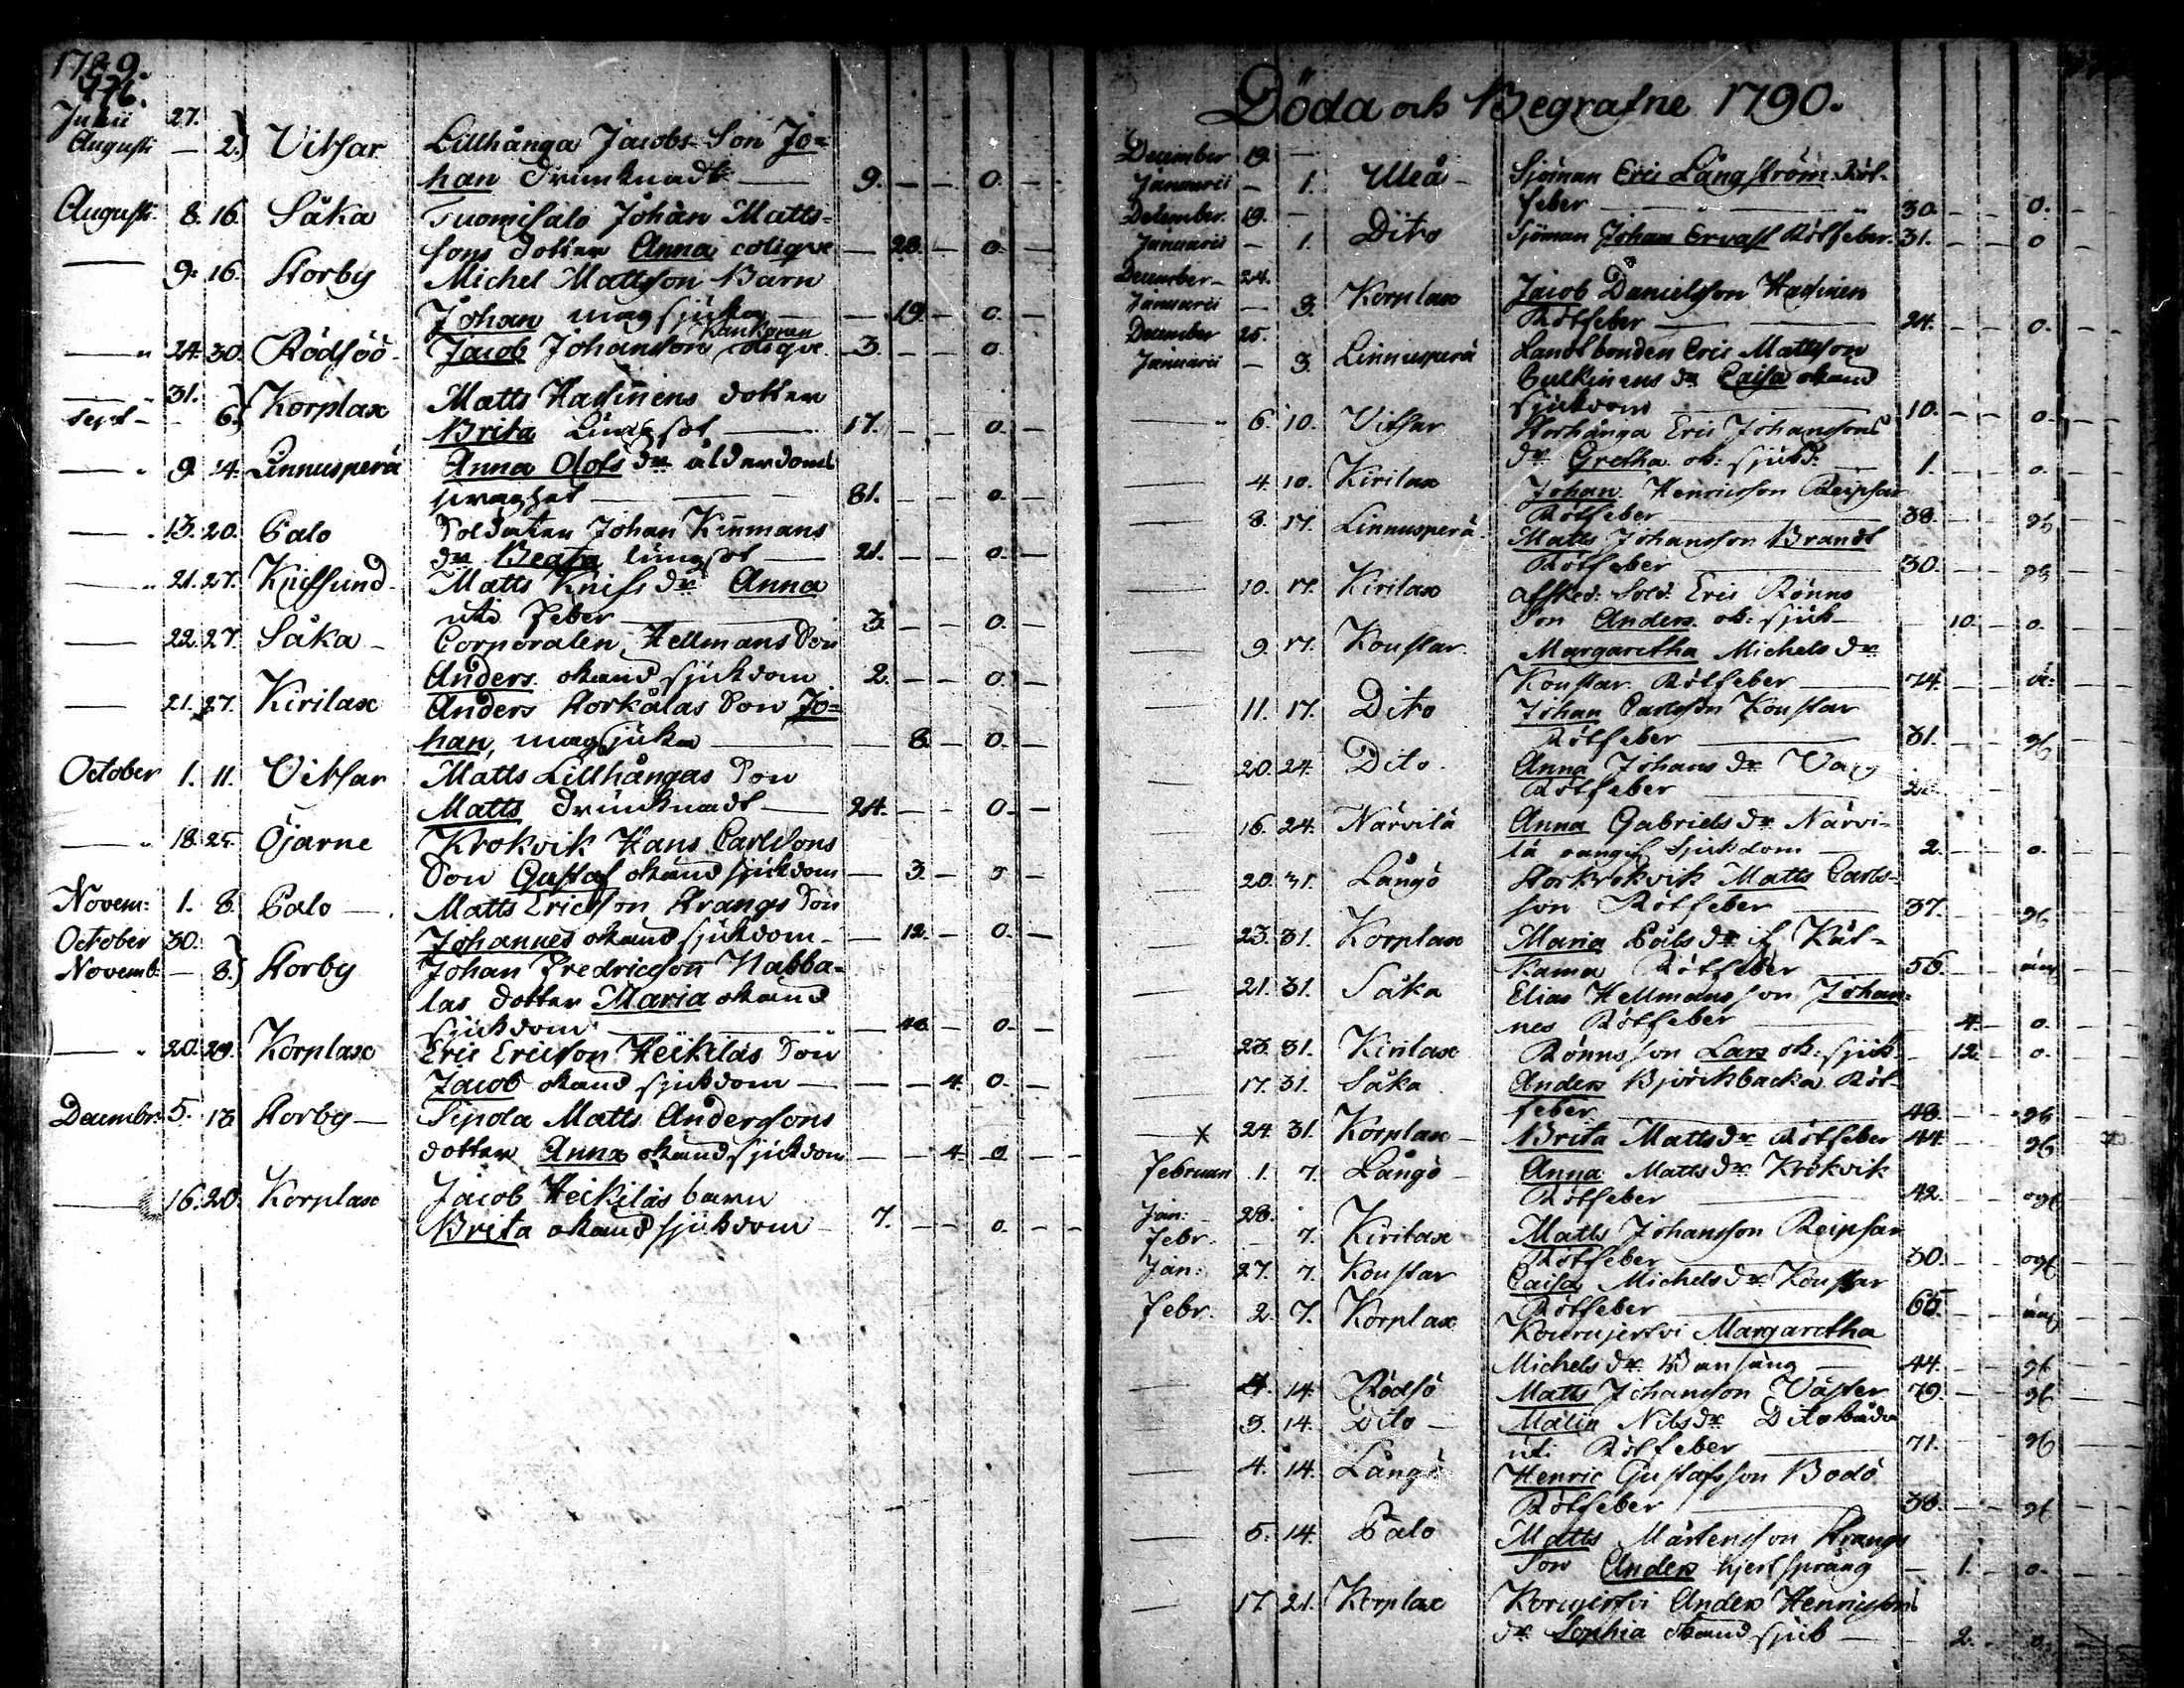 1789.
976.
Julii 27.
Augusti — 2. Vitsar Lillhånga Jacobs Son Jo=
han drunknadt — 9. — — 0. —
Augusti. 8. 16. Såka Tuomisalo Johan Matts=
sons dotter Anna colique — 28. — 0. —
— 9. 16. Storby Michel Mattsson Barn
Johan magsjuka — 19. — 0. —
Kankonen
— 24. 30. Rödsöö Jacob Johansson colique 3. — — 0.
— 31.
Sept — 6. Korplax Matts Hassinens dotter
Brita Lungsot — 17. — — 0. —
— 9. 14. Linnusperä Anna Olofs dr ålderdoms
swaghet — 81. — — 0. —
— 13. 20. Palo Soldaten Johan Kinmans
dr Beata lungsot — 21. — — 0. —
— 21. 27. Knifsund Matts Knifs dr Anna
uti feber — 3. — — 0. —
— 22. 27. Såka — Corporalen Hellmans Son
Anders okänd sjukdom 2. — — 0. —
— 21. 27. Kirilax Anders Storkålas Son Jo=
han, magsjuka — 8. — 0. —
October 1. 11. Vitsar Matts Lillhångas Son
Matts drunknadt — 24. — — 0. —
— 18. 25. Öjarne Krokvik Hans Carlsons
Son Gustaf okänd sjukdom — 3. — 0 —
Novem: 1. 8. Palo — Matts Ericsson Strangs Son
Johannes okänd sjukdom — 12. — 0. —
October 30.
Novemb: — 8. Storby Johan Fredricsson Nabba=
las dotter Maria okänd
sjukdom — — 0. —
— 20. 29. Korplax Eric Ericsson Heikiläs Son
Jacob okänd sjukdom — — — 4. 0. —
Decembr. 5. 13. Storby — Sipola Matts Anderssons
dotter Anna okänd sjukdom — — 4. 0 —
— 16. 20. Korplax Jacob Heikiläs barn
Brita okänd sjukdom — 7. — — 0. —
Döda och Begrafne 1790.
December 19. —
Januarii — 1. Uleå — Sjöman Eric Långström Röt-
feber — 30. — — 0. —
December. 19. —
Januarii — 1. Dito Sjöman Johan Ervast Rötfeber. 31. — — 0 —
December — 24.
Januarii — 3. Korplax Jacob Danielsson Hassinen
Rötfeber — 24. — — 0. —
December 25.
Januarii — 3. Linnusperä Landbonden Eric Mattsson
Pulkinens dr Caisa okänd
sjukdom — 10. — — 0. —
— 6. 10. Vitsar Storhånga Eric Johanssons
dr Gretha ok: sjukd: — 1. — — 0. —
— 4. 10. Kirilax Johan Henricsson Reipsar
Rötfeber — 38. — — gf
— 8. 17. Linnusperä Matts Johansson Brandt
Rötfeber — 30. — — gf
— 10. 17. Kirilax afsked: Sold: Eric Rönns
Son Anders ok: sjuk — 10. — 0. —
— 9. 17. Koustar Margaretha Michels dr
Koustar Rötfeber — 74. — —
— 11. 17. Dito Johan Carlsson Koustar
Rötfeber — 31. — — gf
— 20. 24. Dito Anna Johans dr
Rötfeber —
— 16. 24. Närvilä Anna Gabriels dr Närvi-
lä sjukdom — 2. — — 0. —
— 20. 31. Långö Storkrokvik Matts Carls-
son Rötfeber — 37. — — gf.
— 23. 31. Korplax Maria Påls dr
Rötfeber — 56. — —
— 21. 31. Såka Elias Hellmans son Johan-
nes Rötfeber — 4. — 0. —
— 23. 31. Kirilax Rönns son Lars ok: sjuk — 12. — 0. —
17. 31. Såka Anders Björkbacka Röt-
feber — 48. — — gf
— x 24. 31. Korplax — Brita Matts dr Rötfeber 44. — — gf
Februarii 1. 7. Långö — Anna Matts dr Krokvik
Rötfeber — 42. — — ogf
Jan: — 28.
Febr. — 7. Kirilax Matts Johansson Reipsar
Rötfeber — 30. — — ogf
Jan: 27. 7. Koustar Caisa Michels dr Koustar
Rötfeber — 65. — —
Febr. 2. 7. Korplax Kourujerfvi Margaretha
Michels dr Barnsäng — 44. — — gf
— 4. 14. Rödsö Matts Johansson Väster 79. — — gf
— 3. 14. Dito — Malin Nils dr Dito båda
uti Rötfeber — 71. — — gf
— 4. 14. Långö Henric Gustafsson Bodö
Rötfeber — 38. — — gf
— 5. 14. Palo Matts Mårtensson Strangs
Son Anders hjertsprång — 1. — 0. —
— 17. 21. Korplax Anders Henricssons
dr Sophia okänd sjuk — — 2. — 0. —